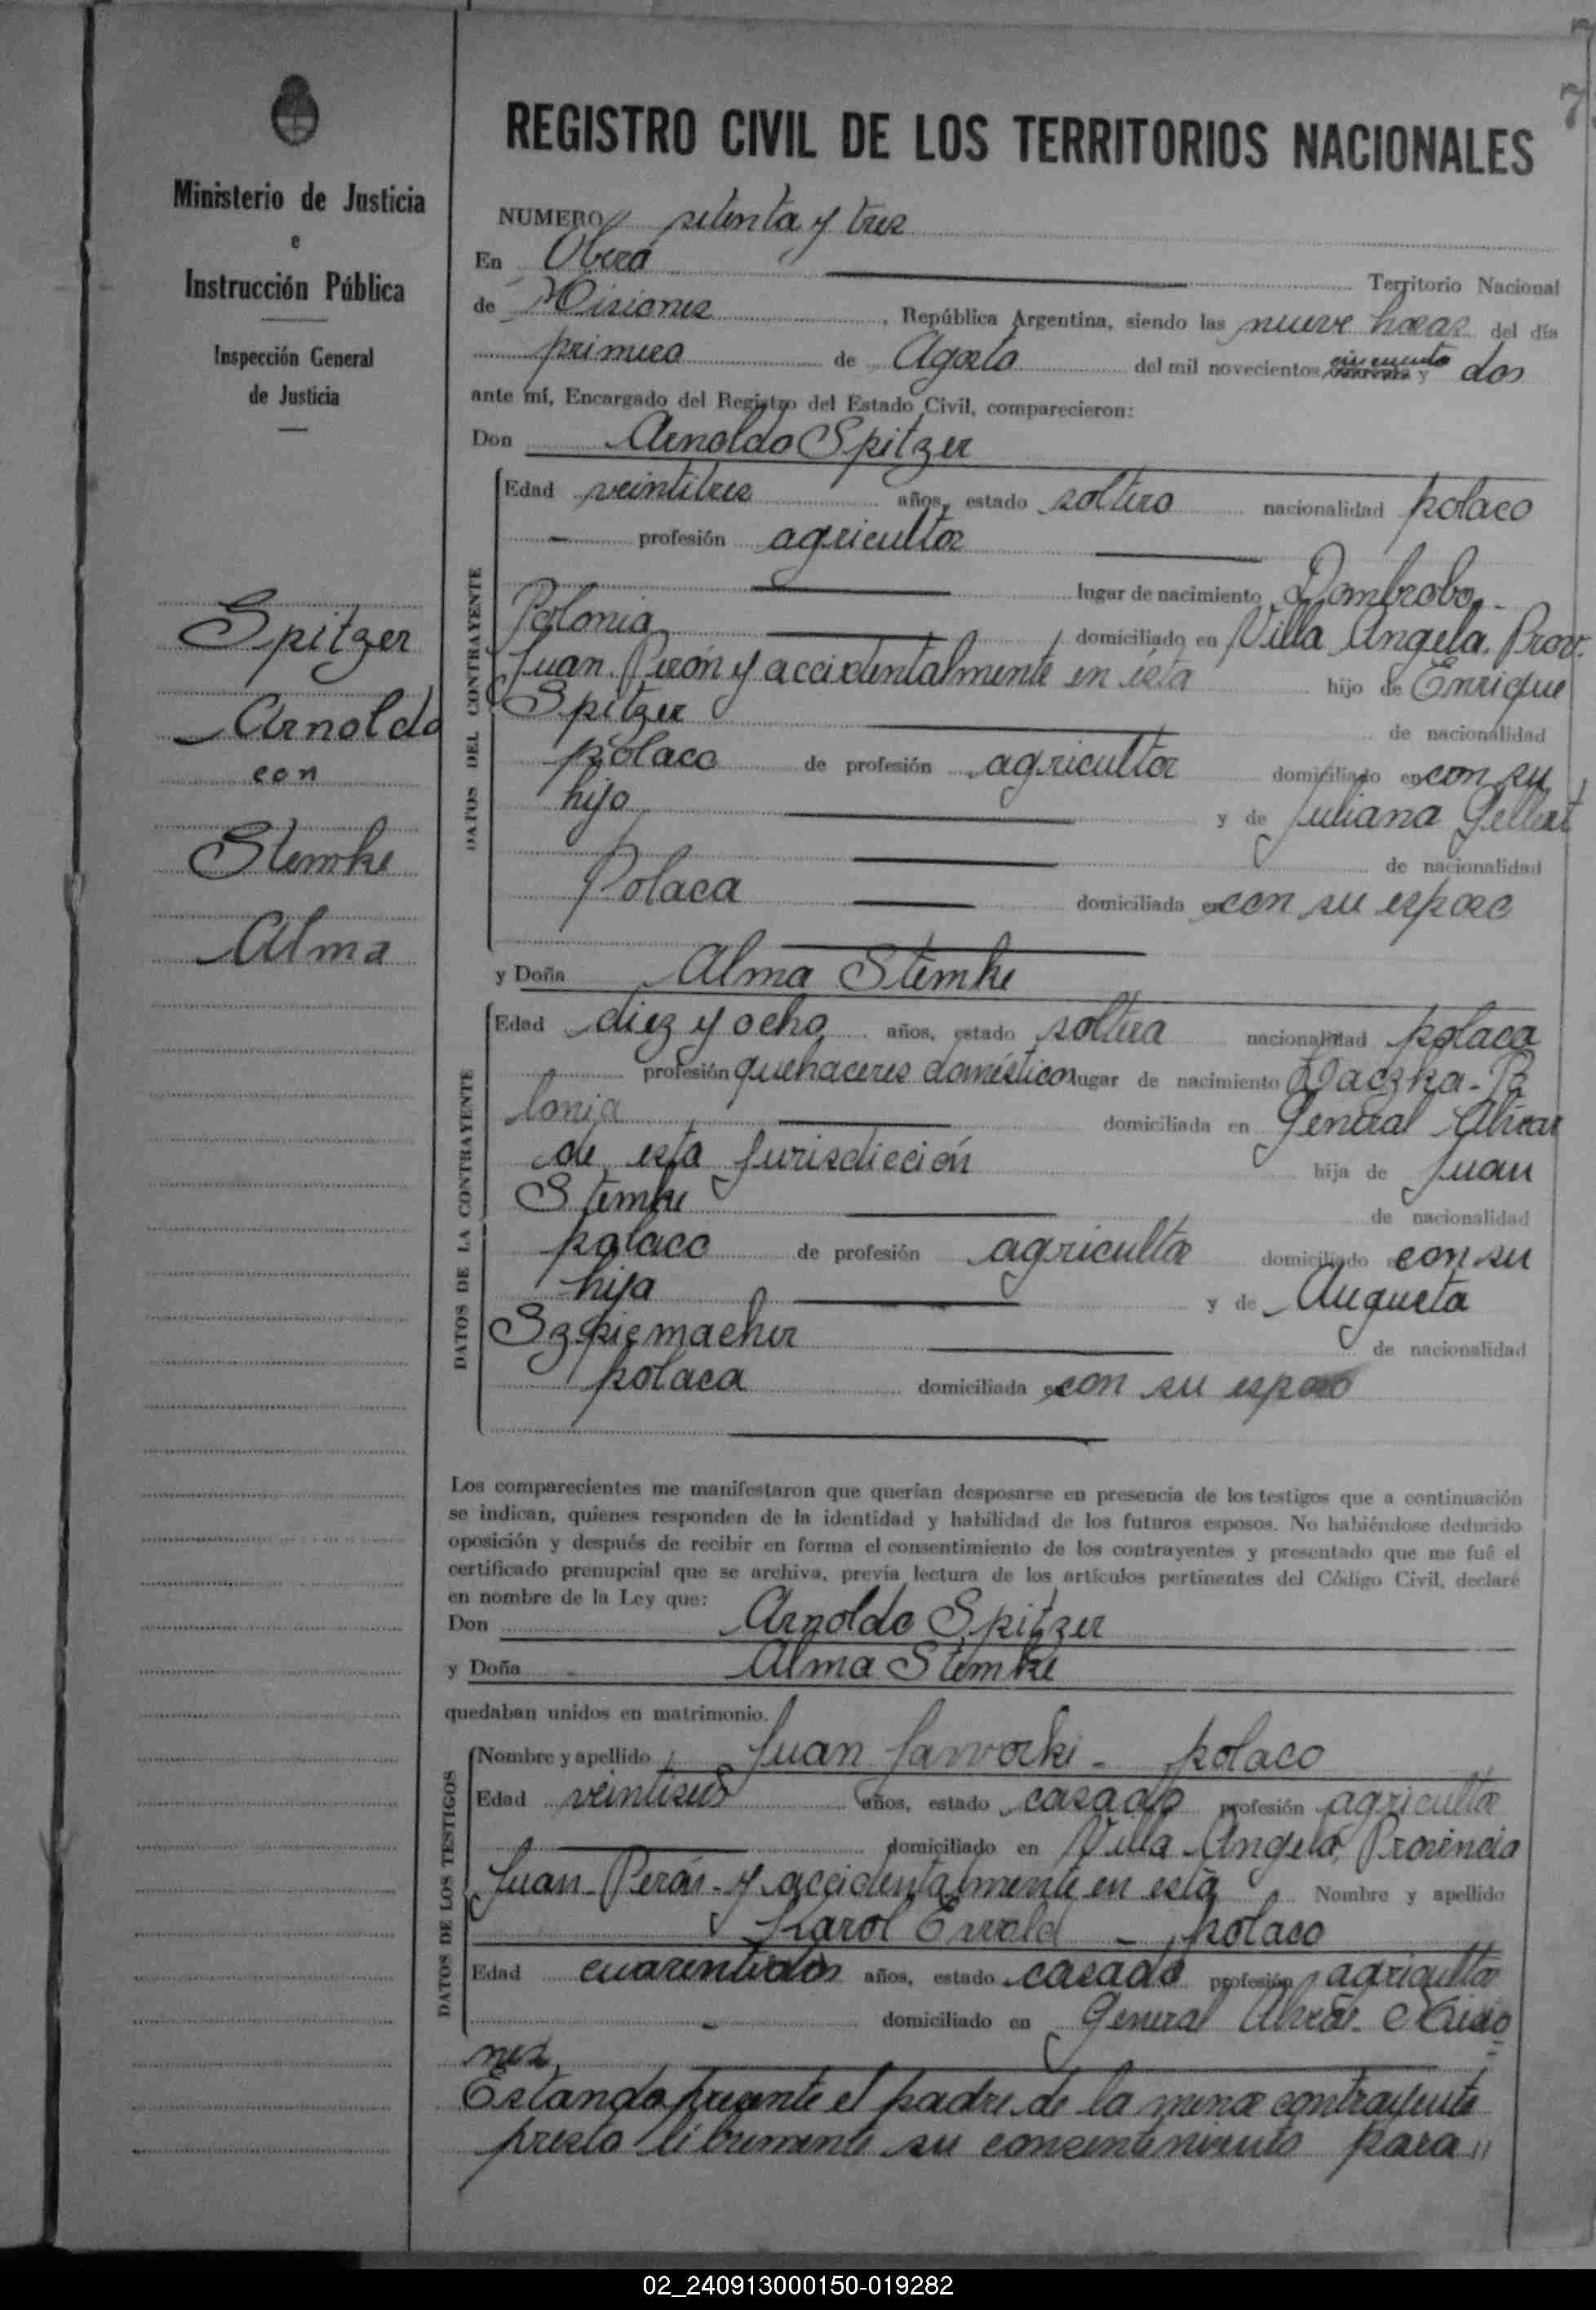 7
REGISTRO CIVIL DE LOS TERRITORIOS NACIONALES
Ministerio de Justicia
e
Instrucción Pública
Inspección General
de Justicia
Spitzer
Arnoldo
con
Stemke
Alma
NUMERO setenta y tres
En Oberá Territorio Nacional
de Misiones, República Argentina, siendo las nueve horas del día
primero de Agosto del mil novecientos cincuenta y dos
ante mí, Encargado del Registro del Estado Civil, comparecieron:
Don Arnoldo Spitzer
DATOS DEL CONTRAYENTE
Edad veintitres años, estado soltero nacionalidad polaco
profesión agricultor
lugar de nacimiento Dombrobo -
Polonia domiciliado en Villa Angela. Prov.
Juan Perón y accidentalmente en ésta hijo de Enrique
Spitzer de nacionalidad
polaco de profesión agricultor domiciliado en con su
hijo y de Juliana Gellert
de nacionalidad
Polaca domiciliada en con su esposo
y Doña Alma Stemke
DATOS DE LA CONTRAYENTE
Edad diez y ocho años, estado soltera nacionalidad polaca
profesión quehaceres domésticos lugar de nacimiento Po
lonia domiciliada en General Alvear
de esta Jurisdicción hija de Juan
Stemke de nacionalidad
polaco de profesión agricultor domiciliado con su
hija y de Augusta
de nacionalidad
polaca domiciliada en con su esposo
Los comparecientes me manifestaron que querían desposarse en presencia de los testigos que a continuación
se indican, quienes responden de la identidad y habilidad de los futuros esposos. No habiéndose deducido
oposición y después de recibir en forma el consentimiento de los contrayentes y presentado que me fué el
certificado prenupcial que se archiva, previa lectura de los artículos pertinentes del Código Civil, declaré
en nombre de la Ley que:
Don Arnoldo Spitzer
y Doña Alma Stemke
quedaban unidos en matrimonio.
DATOS DE LOS TESTIGOS
Nombre y apellido Juan Jaworki - polaco
Edad veintiseis años, estado casado profesión agricultor
domiciliado en Villa Angela, Provincia
Juan Perón - y accidentalmente en esta Nombre y apellido
Karol Ewald - polaco
Edad cuarentidos años, estado casado profesión agricultor
domiciliado en General Alvear - Misio
nes
Estando presente el padre de la menor contrayente
presto libremente su consentimiento para "
02_240913000150-019282